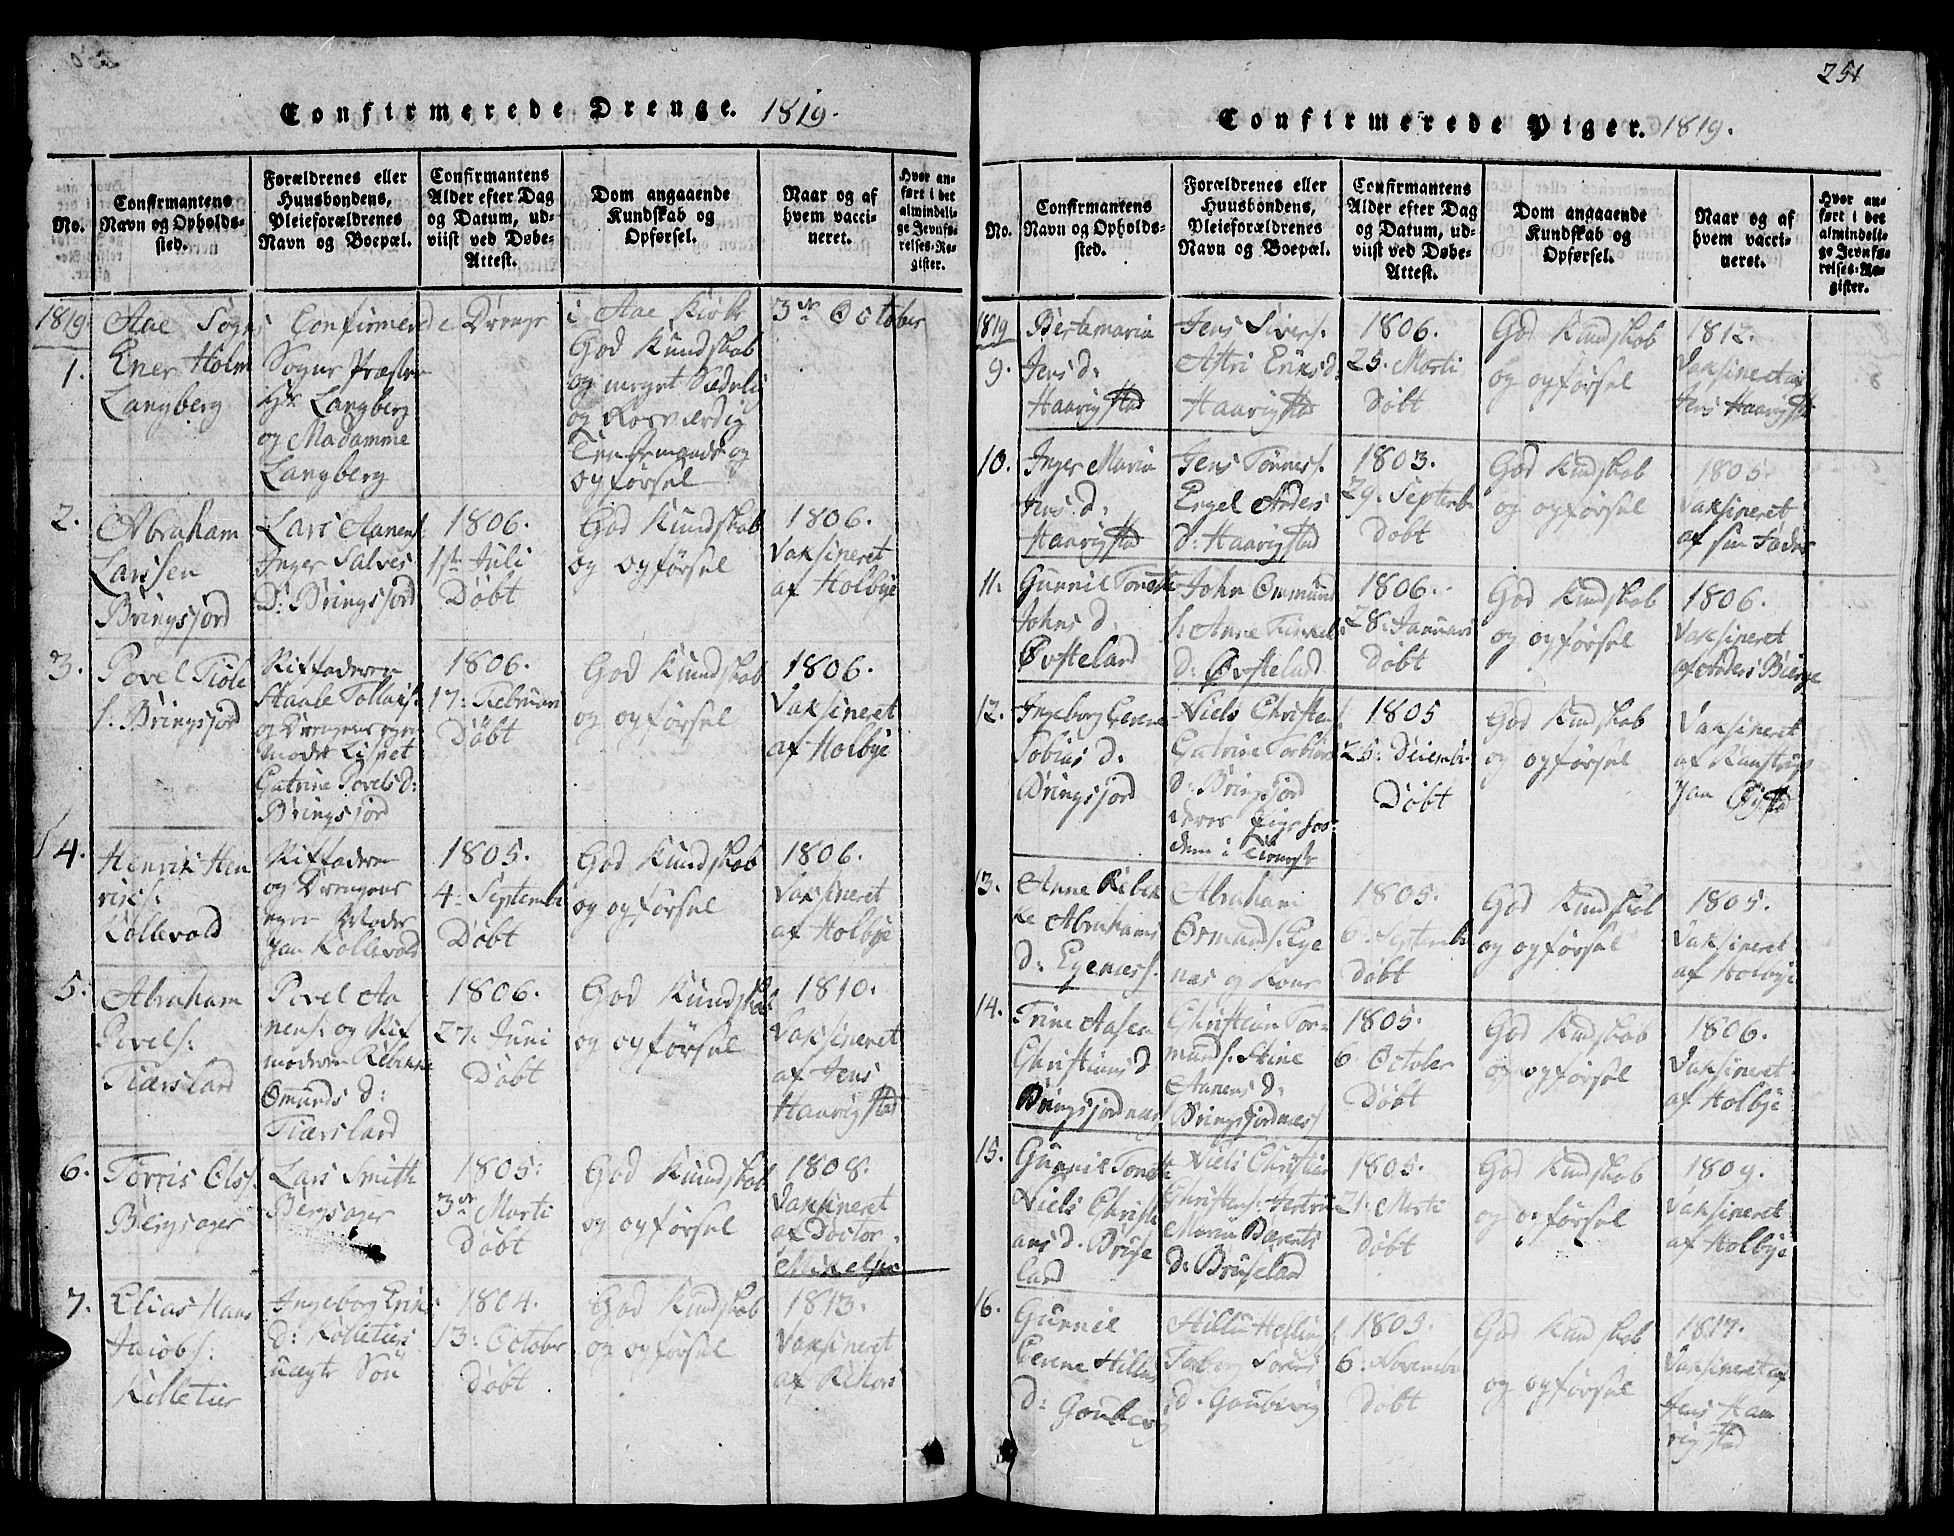 Confirmerede Drenge. 1819.
No.
Confirmantens
Navn og Opholds-
sted.
Forældrenes eller
Huusbondens,
Pleieforældrenes
Navn og Boepæl.
Confirmantens
Alder efter Dag
og Datum, ud-
viist ved Døbe-
Attest.
Dom angaaende
Kundskab og
Opførsel.
Naar og af
hvem vacci-
neret.
Hvor an-
ført i det
almindeli-
ge Jevnfø-
relses-Re-
gister.
1819. Aae Sogns Confirmerede Drenge i Aae Kirke 3de October
1.
Ener Holm
Langberg
Sogne Præsten
Hr. Langberg
og Madamme
Langberg
God Kundskab
og meget Sædeli
og Rosværdig
og
opførsel
2.
Abraham
Larssen
Bringsjord
Lars Aanens
Inger Salves
D: Bringsjord
1806.
1ste Juli
Døbt
God Kundskab
og opførsel
1806.
Vaksineret
af Holbye
3.
Povel Tiøls
s. Bringsjord
Stifaderen
Staale Tollags.
og Drengens egen
moder Lisbet
Catrine Povels D:
Bringsjor
1806.
17: Februari
Døbt
God Kundskab
og opførsel
1806.
Vaksineret
af Holbye
4.
Henrik Hen
riks:
Kollevold
Stifaderen
og Drengens
egen Moder
Jan Kollevold
1805.
4. Septembe
Døbt
God Kundskab
og opførsel
1806.
Vaksineret
af Holbye
5.
Abraham
Povels:
Tiærsland
Povel Aa
nens: og Stif
moderen
Omunds D:
Tiærsland
1806.
27: Juni
Døbt
God Kundskab
og opførsel
1810.
Vaksineret
af Jens
Haarigstad
6.
Torris Olss.
Bergsager
Lars Smith
Bergsager
1805:
3de Marti
Døbt
God Kundskab
og opførsel
1808.
Vaksineret
af Doctor
Mikelsen
7.
Elias Hans
Jacobs:
Kolletier
Ingeborg Erik
D: Kolletiers
uægte Søn
1804.
13: October
Døbt
God Kundskab
og opførsel
1813.
Vaksineret
af
251
Confirmerede Piger. 1819.
No.
Confirmantens
Navn og Opholds-
sted.
Forældrenes eller
Huusbondens,
Pleieforældrenes
Navn og Boepæl.
Confirmantens
Alder efter Dag
og Datum, ud-
viist ved Døbe-
Attest.
Dom angaaende
Kundskab og
Opførsel.
Naar og af
hvem vacci-
neret.
Hvor an-
ført i det
almindeli-
ge Jevnfø-
relses-Re-
gister.
1819
9.
Bertemaria
Jens d:
Haarigstad
Jens Sivers.
Astri Eriks d:
Haarigstad
1806.
25. Marti
Døbt
God Kundskab
og opførsel
1812.
Vaksineret af
Jens Haarigstad
10.
Inger Maria
Jens d:
Haarigstad
Jens Tønnes.
Engel Anders
d: Haarigstad
1803.
29. Septembe
Døbt
God Kundskab
og opførsel
1805.
Vaksineret
af sin Fader
11.
Gunnil Tonette
Johns d.
Øvfteland
John Ommund
s: Anne
d: Øvfteland
1806.
28: Januari
Døbt
God Kundskab
og opførsel
1806.
Vaksineret
af Anders Bierge
12.
Ingeborg Serene
Tobias d:
Bringsjord
Niels Christens
Catrine Torbiørns
d: Bringsjord
1805
25: Decembe
Døbt
God Kundskab
og opførsel
Vaksineret
af
13.
Anne Rebek
ke Abrahams
D: Egenæss.
Abraham
Ormunds. Ege
næs og Kone
1805.
Septembe
Døbt
God Kundskab
og opførsel
1805.
Vaksineret
af Holbye
14.
Trine Aasen
Christians D
Bringsjordnæs
Christian Tor=
munds. Stine
Aanens D:
Bringsjordnæs
1805.
6. October
Døbt
God Kundskab
og opførsel
1806.
Vaksineret
af Holbye
15.
Gunnil Tonette
Niels Christi
ans d. Bruse
land
Niels Christian
Christens:
Maria Barents
D: Bruseland
1805.
21: Marti
Døbt
God Kundskab
og opførsel
1809.
Vaksineret
af Holbye
16.
Gunnil
Serene Hillus
D:
Sørens
d.
1805.
6: Novembe
Døbt
God Kundskab
og opførsel
1817.
Vaksineret af
Jens Haa
rigstad